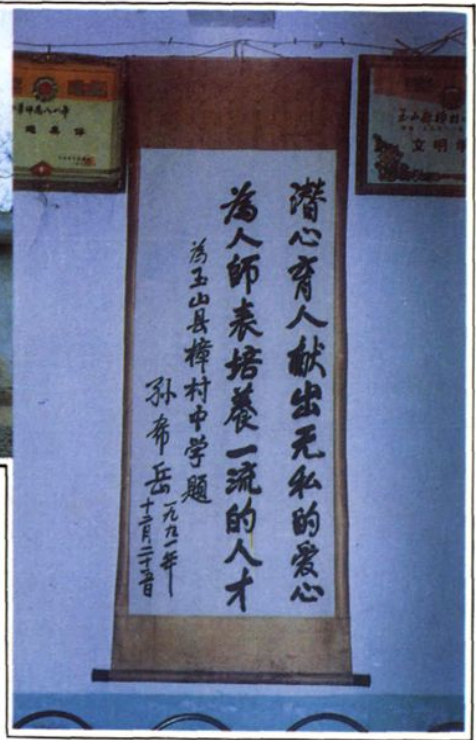 潜心育人献出无私的爱心
為人師表培养一流的人才
為玉山县樟村中学題
孙希岳
一九九一年
十二月二十
文明